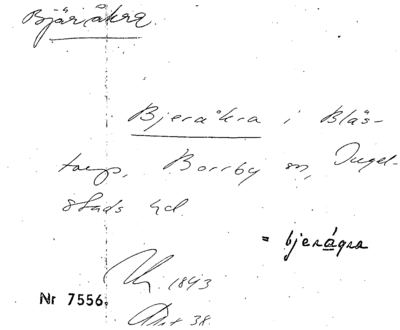 Bjäråkra.
Bjeråkra i Bläs-
torp, Borrby sn, Ingel-
stads hd.
= bjerågra
1843
Nr 7556.
38.